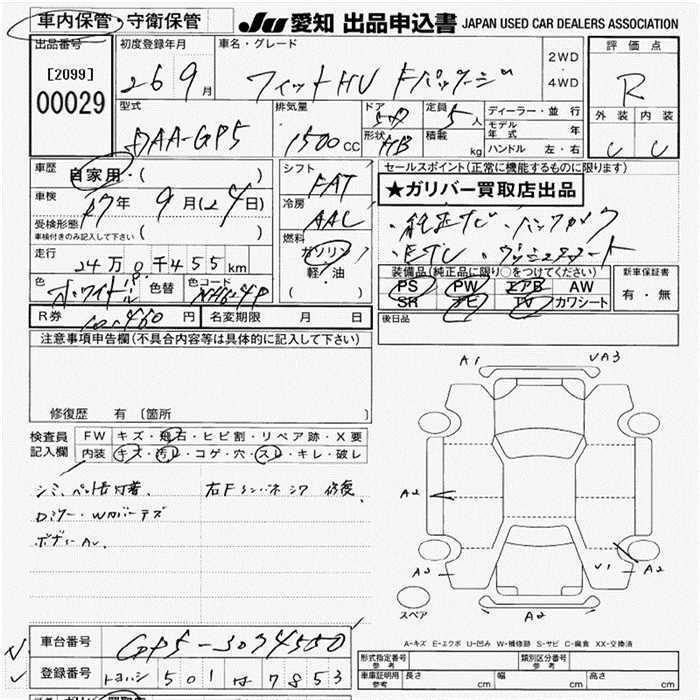 車内保管・守衛保管
JU 愛知 出品申込書 JAPAN USED CAR DEALERS ASSOCIATION
出品番号
[2099]
00029
初度登録年月
26 9月
車名・グレード
フィットHV Fパッケージ
2WD
4WD
評価点
R
外装 内装
C C
型式
DAA-GP5
排気量
1500cc
ドア
5D
形状
HB
定員
5人
積載
kg
ディーラー・並行
モデル年式 年
ハンドル 左・右
車歴
自家用・( )
車検
27年 9月(24日)
受検形態
車検付きのみ記入して下さい ( )
走行
24万0千455km
色
色替
色コード
NH624P
シフト
FAT
冷房
AAC
燃料
ガソリン
軽・油
( )
セールスポイント(正常に機能するものに限ります)
★ガリバー買取店出品
・純正ナビ・バックカメラ
・ETC ・プッシュスタート
装備品(純正品に限り○をつけてください)
PS PW エアB AW
SR ナビ TV カワシート
新車保証書
有・無
R券
10460円
名変期限 月 日
後日品
注意事項申告欄(不具合内容等は具体的に記入して下さい)
修復歴 有 〔箇所 〕
検査員記入欄
FW キズ・飛石・ヒビ割・リペア跡・X要
内装 キズ・汚レ・コゲ・穴・スレ・キレ・破レ
右F 修復
Dミラー・Wカバーキズ
A1 A3
A2
A2 V1 A2
スペア
A2
A-キズ E-エクボ U-凹み W-補修跡 S-サビ C-腐食 XX-交換済
車台番号
GP5-3074550
登録番号
501 は 7853
形式指定番号
参考
類別区分番号
参考
車庫証明用
参考
長さ cm
幅 cm
高さ cm